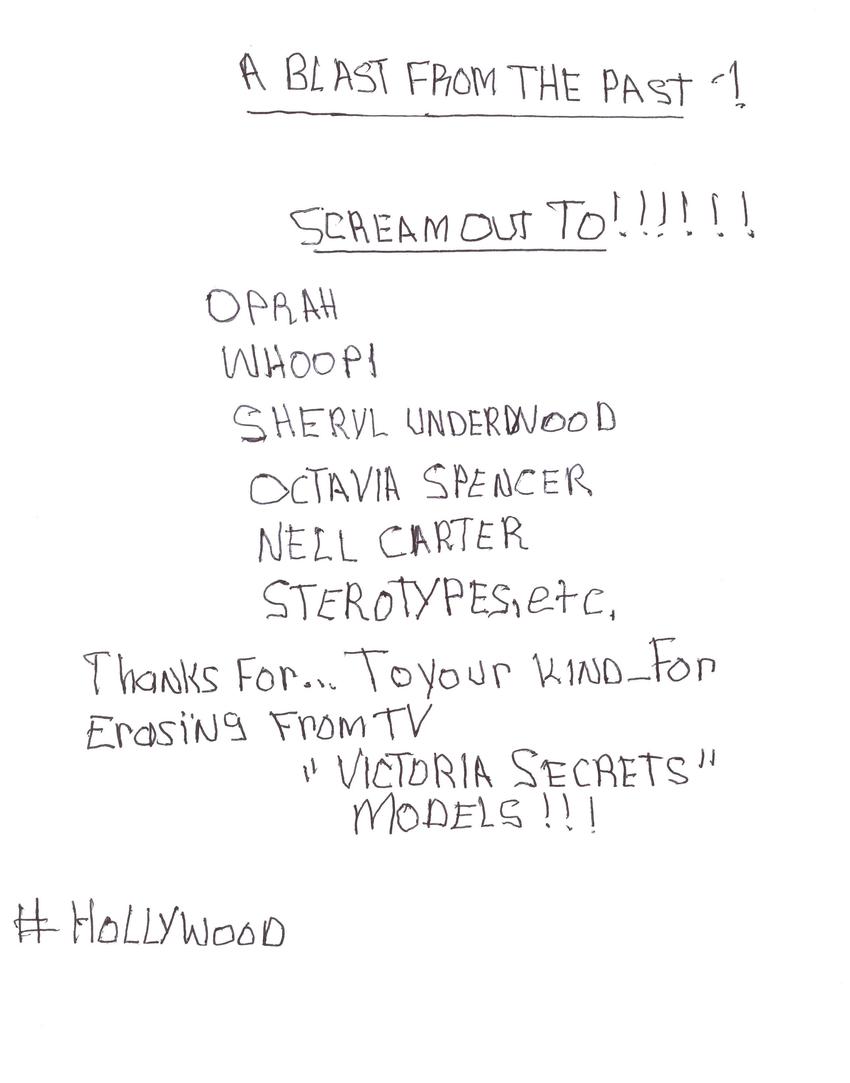 A BLAST FROM THE PAST -!
SCREAM OUT TO!!!!!!
OPRAH
WHOOPI
SHERYL UNDERWOOD
OCTAVIA SPENCER
NELL CARTER
STEROTYPES, etc.
Thanks For... To your KIND_For
Erasing From TV
"VICTORIA SECRETS"
MODELS!!!
# HOLLYWOOD